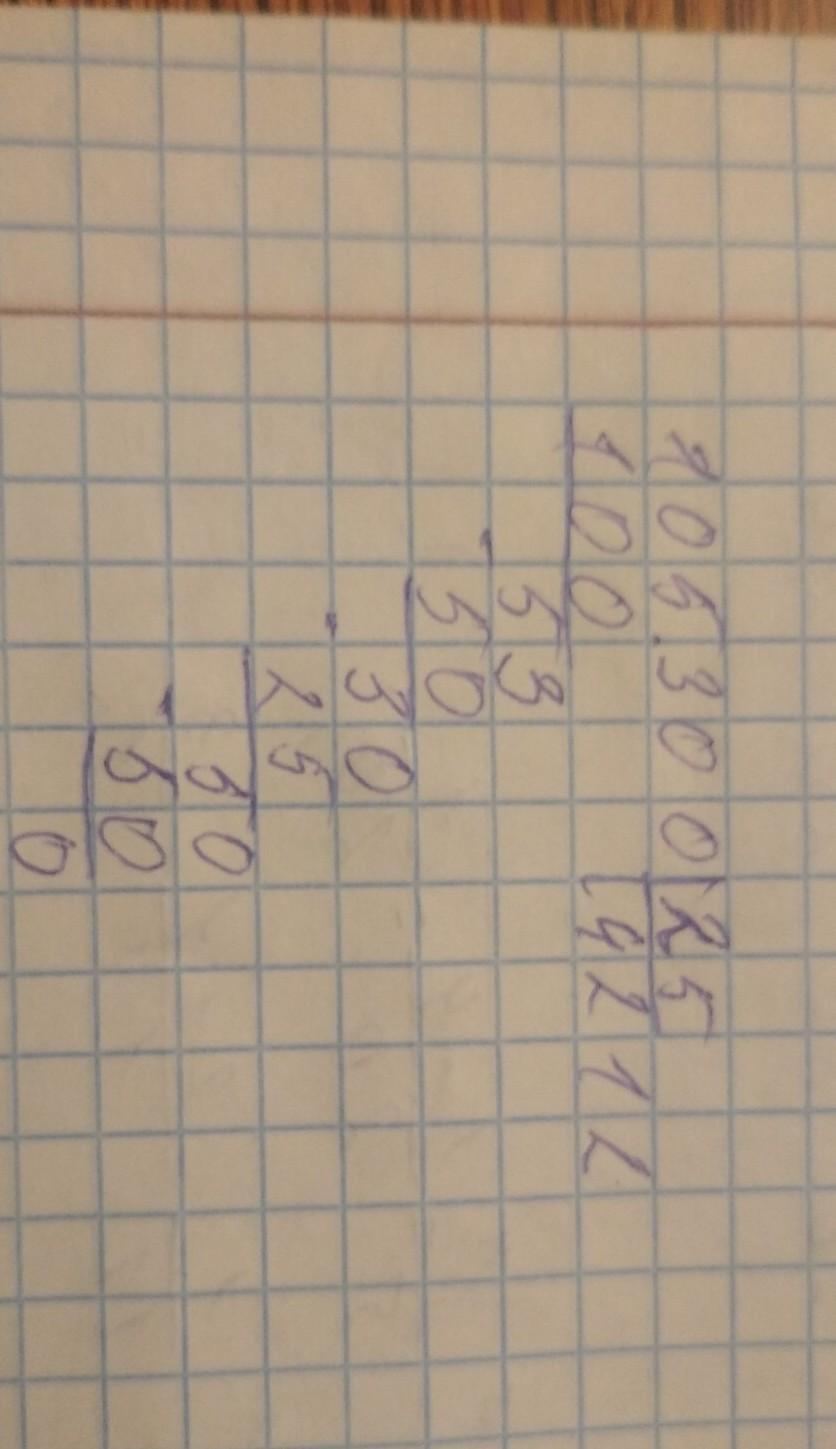 105.300|25
100 |4212
- 53
50
- 30
25
- 50
50
0